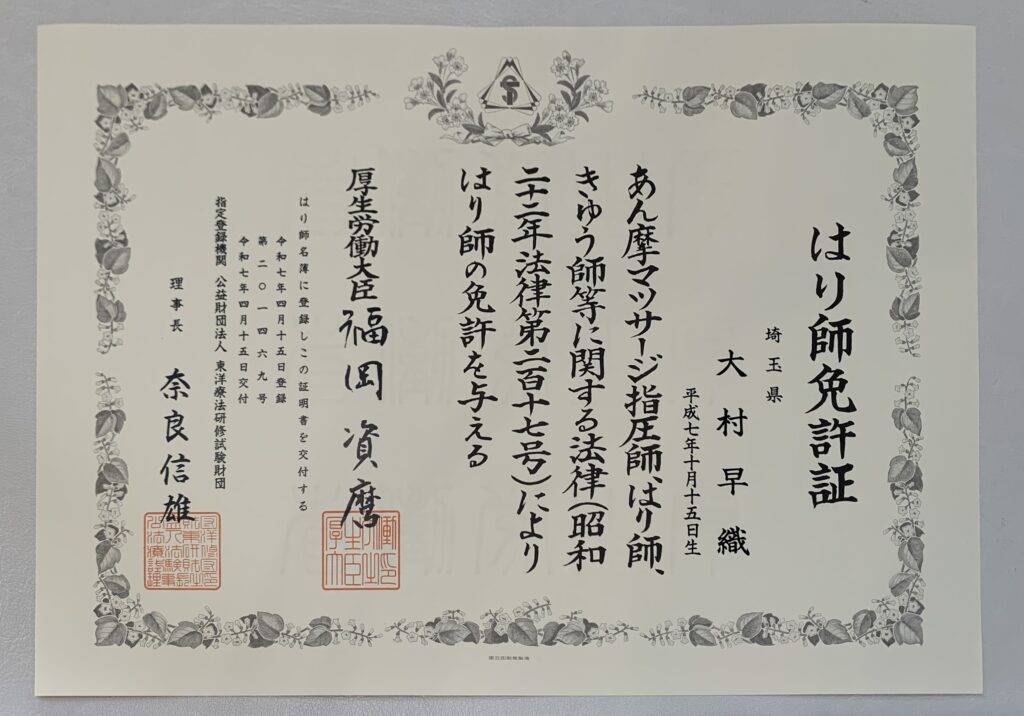 はり師免許証
埼玉県
大村早織
平成七年十月十五日生
あん摩マツサージ指圧師、はり師、
きゆう師等に関する法律（昭和
二十二年法律第二百十七号）により
はり師の免許を与える
厚生労働大臣 福岡資麿
はり師名簿に登録しこの証明書を交付する
令和七年四月十五日登録
第二〇一四六九号
令和七年四月十五日交付
指定登録機関 公益財団法人 東洋療法研修試験財団
理事長 奈良信雄